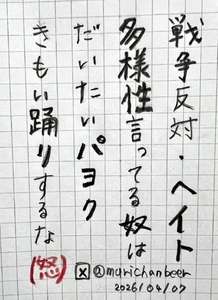 戦争反対・ヘイト
多様性言ってる奴は
だいたいパヨク
きもい踊りするな
(怒)
X @marichanbeer
2026/04/07